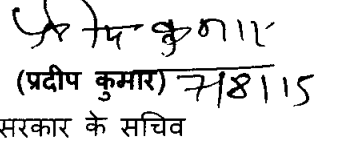 प्रदीप कुमार
(प्रदीप कुमार) 7/8/15
सरकार के सचिव